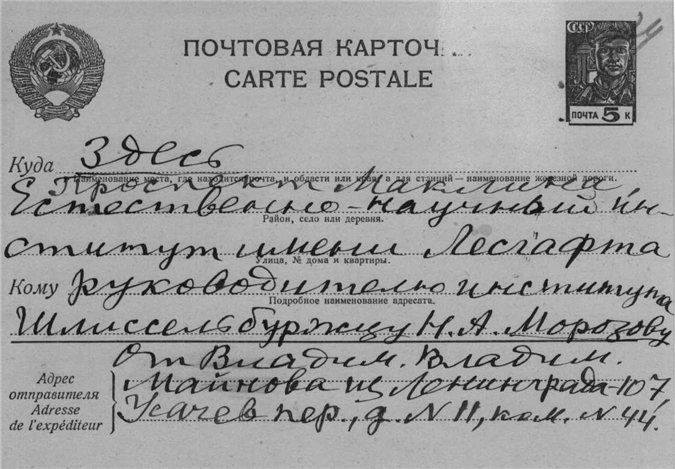 ПОЧТОВАЯ КАРТОЧ
CARTE POSTALE
СССР
ПОЧТА 5 К
Куда Здесь
Наименование места, где находится почта, и области или края, а для станций — наименование железной дороги.
Проспект Маклина
Естественно-научный ин-
Район, село или деревня.
ститут имени Лесгафта
Улица, № дома и квартиры.
Кому руководителю института
Подробное наименование адресата.
Шлиссельбуржцу Н. А. Морозову
От Владим. Владим.
Адрес отправителя
Adresse de l'expéditeur
Майнова из Ленинграда-107,
Усачев пер., д. N 11, ком. N 44.